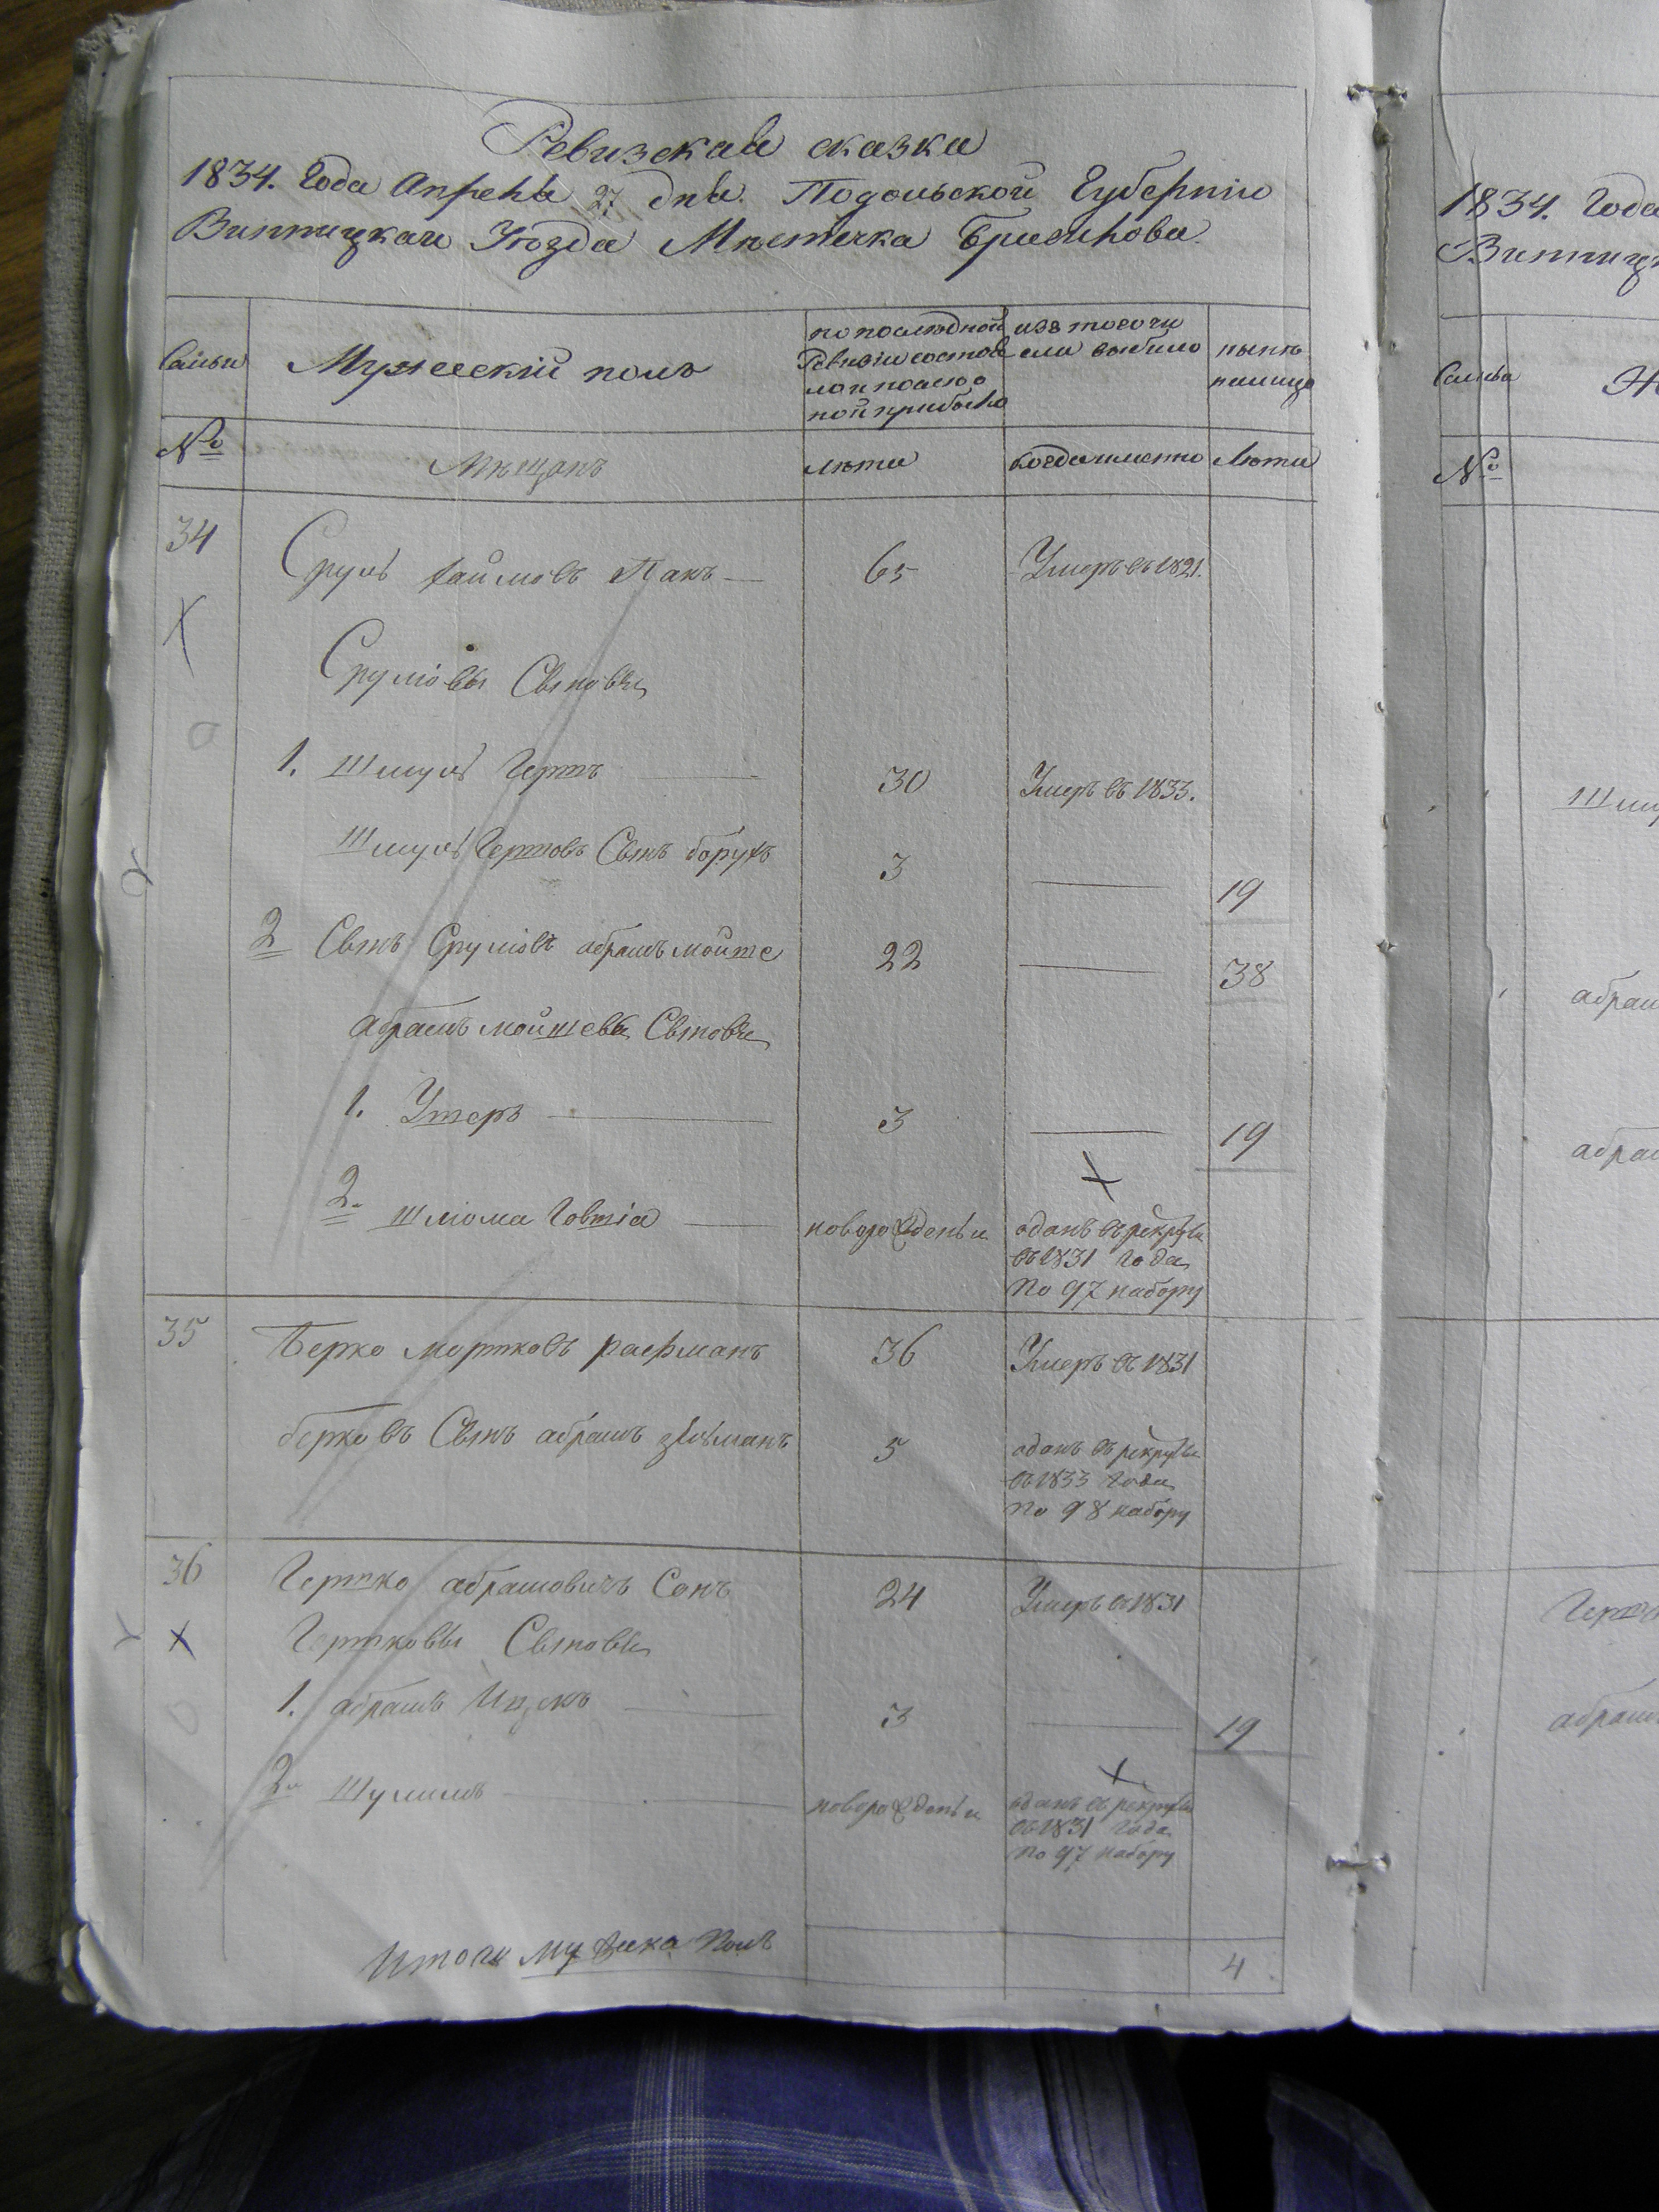 Ревизская сказка
1834. Года Апреля 27 дня. Подольской Губернiи
Винницкаго Уѣзда Мѣстечка Браилова.
Семьи
Мужескiй полъ
по послѣдной
Ревизiи состоя
ло и послѣ о
ной прибыло
изъ того чи
сла выбыло
нынѣ
на лицо
№
Мѣщанъ
лѣта
когда именно
Лѣта
34
Сруль Хаймовъ Пакъ
65
Умеръ въ 1821.
Срулiовы Сыновья
1. Шмуль Гершъ
30
Умеръ въ 1833.
Шмуль Гершовъ Сынъ борухъ
3
19
2 Сынъ Срулiовъ абрамъ мойше
22
38
абрамъ мойшевы Сыновья
1. Ушеръ
3
19
2. шлiома Говшiа
новорожденьи
аданъ въ рекруты
въ 1831 Года
по 97 набору
35
Берко мортковъ расманъ
36
Умеръ въ 1831
берковъ Сынъ абрамъ зельманъ
5
аданъ въ рекруты
въ 1833 Года
по 98 набору
36
Гершко абрамовичъ Сокъ
24
Умеръ въ 1831
Гершковы Сыновья
1. абрамъ Ицекъ
3
19
2. Шулимъ
новорожденьи
аданъ въ рекруты
въ 1831 Года
по 97 набору
Итого мужеска полъ
4
1834. Года
Винниц
Семьи
№
Шму
абрам
абрам
Герш
абрам